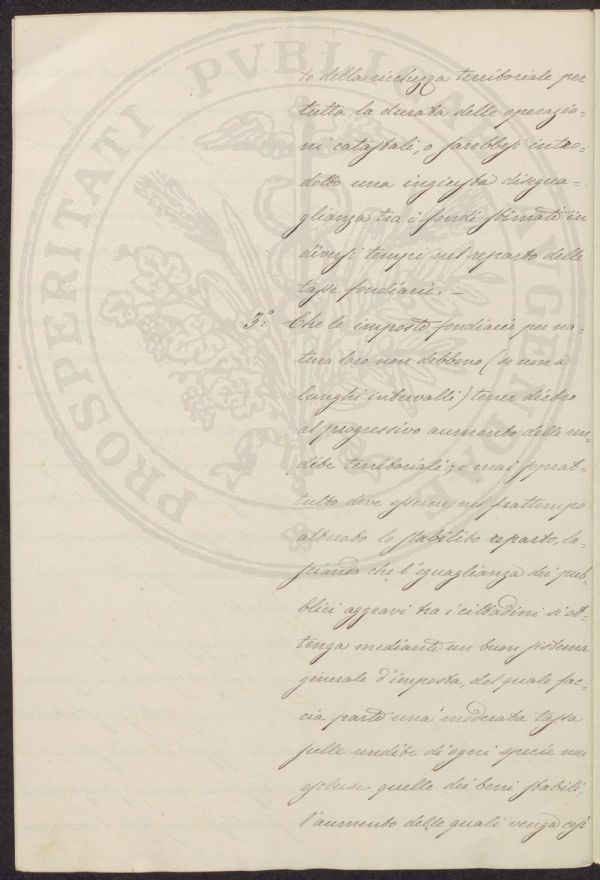 PROSPERITATI PVBLICAE AVGENDAE
to della ricchezza territoriale per
tutta la durata delle operazio=
ni catastali, o sarebbesi intro=
dotto una ingiusta disegua=
glianza tra i fondi stimati in
diversi tempi nel reparto delle
tasse fondiarie. —
3.° Che le imposte fondiarie per na=
tura loro non debbono (se non a
lunghi intervalli) tener dietro
al progressivo aumento delle ren=
dite territoriali; e mai soprat=
tutto deve esserne nel frattempo
alterato lo stabilito reparto, la=
sciando che l'eguaglianza dei pub=
blici aggravi tra i cittadini si ot=
tenga mediante un buon sistema
generale d'imposta, del quale fac=
cia parte una moderata tassa
sulle rendite di ogni specie non
escluse quelle dei beni stabili,
l'aumento delle quali venga così